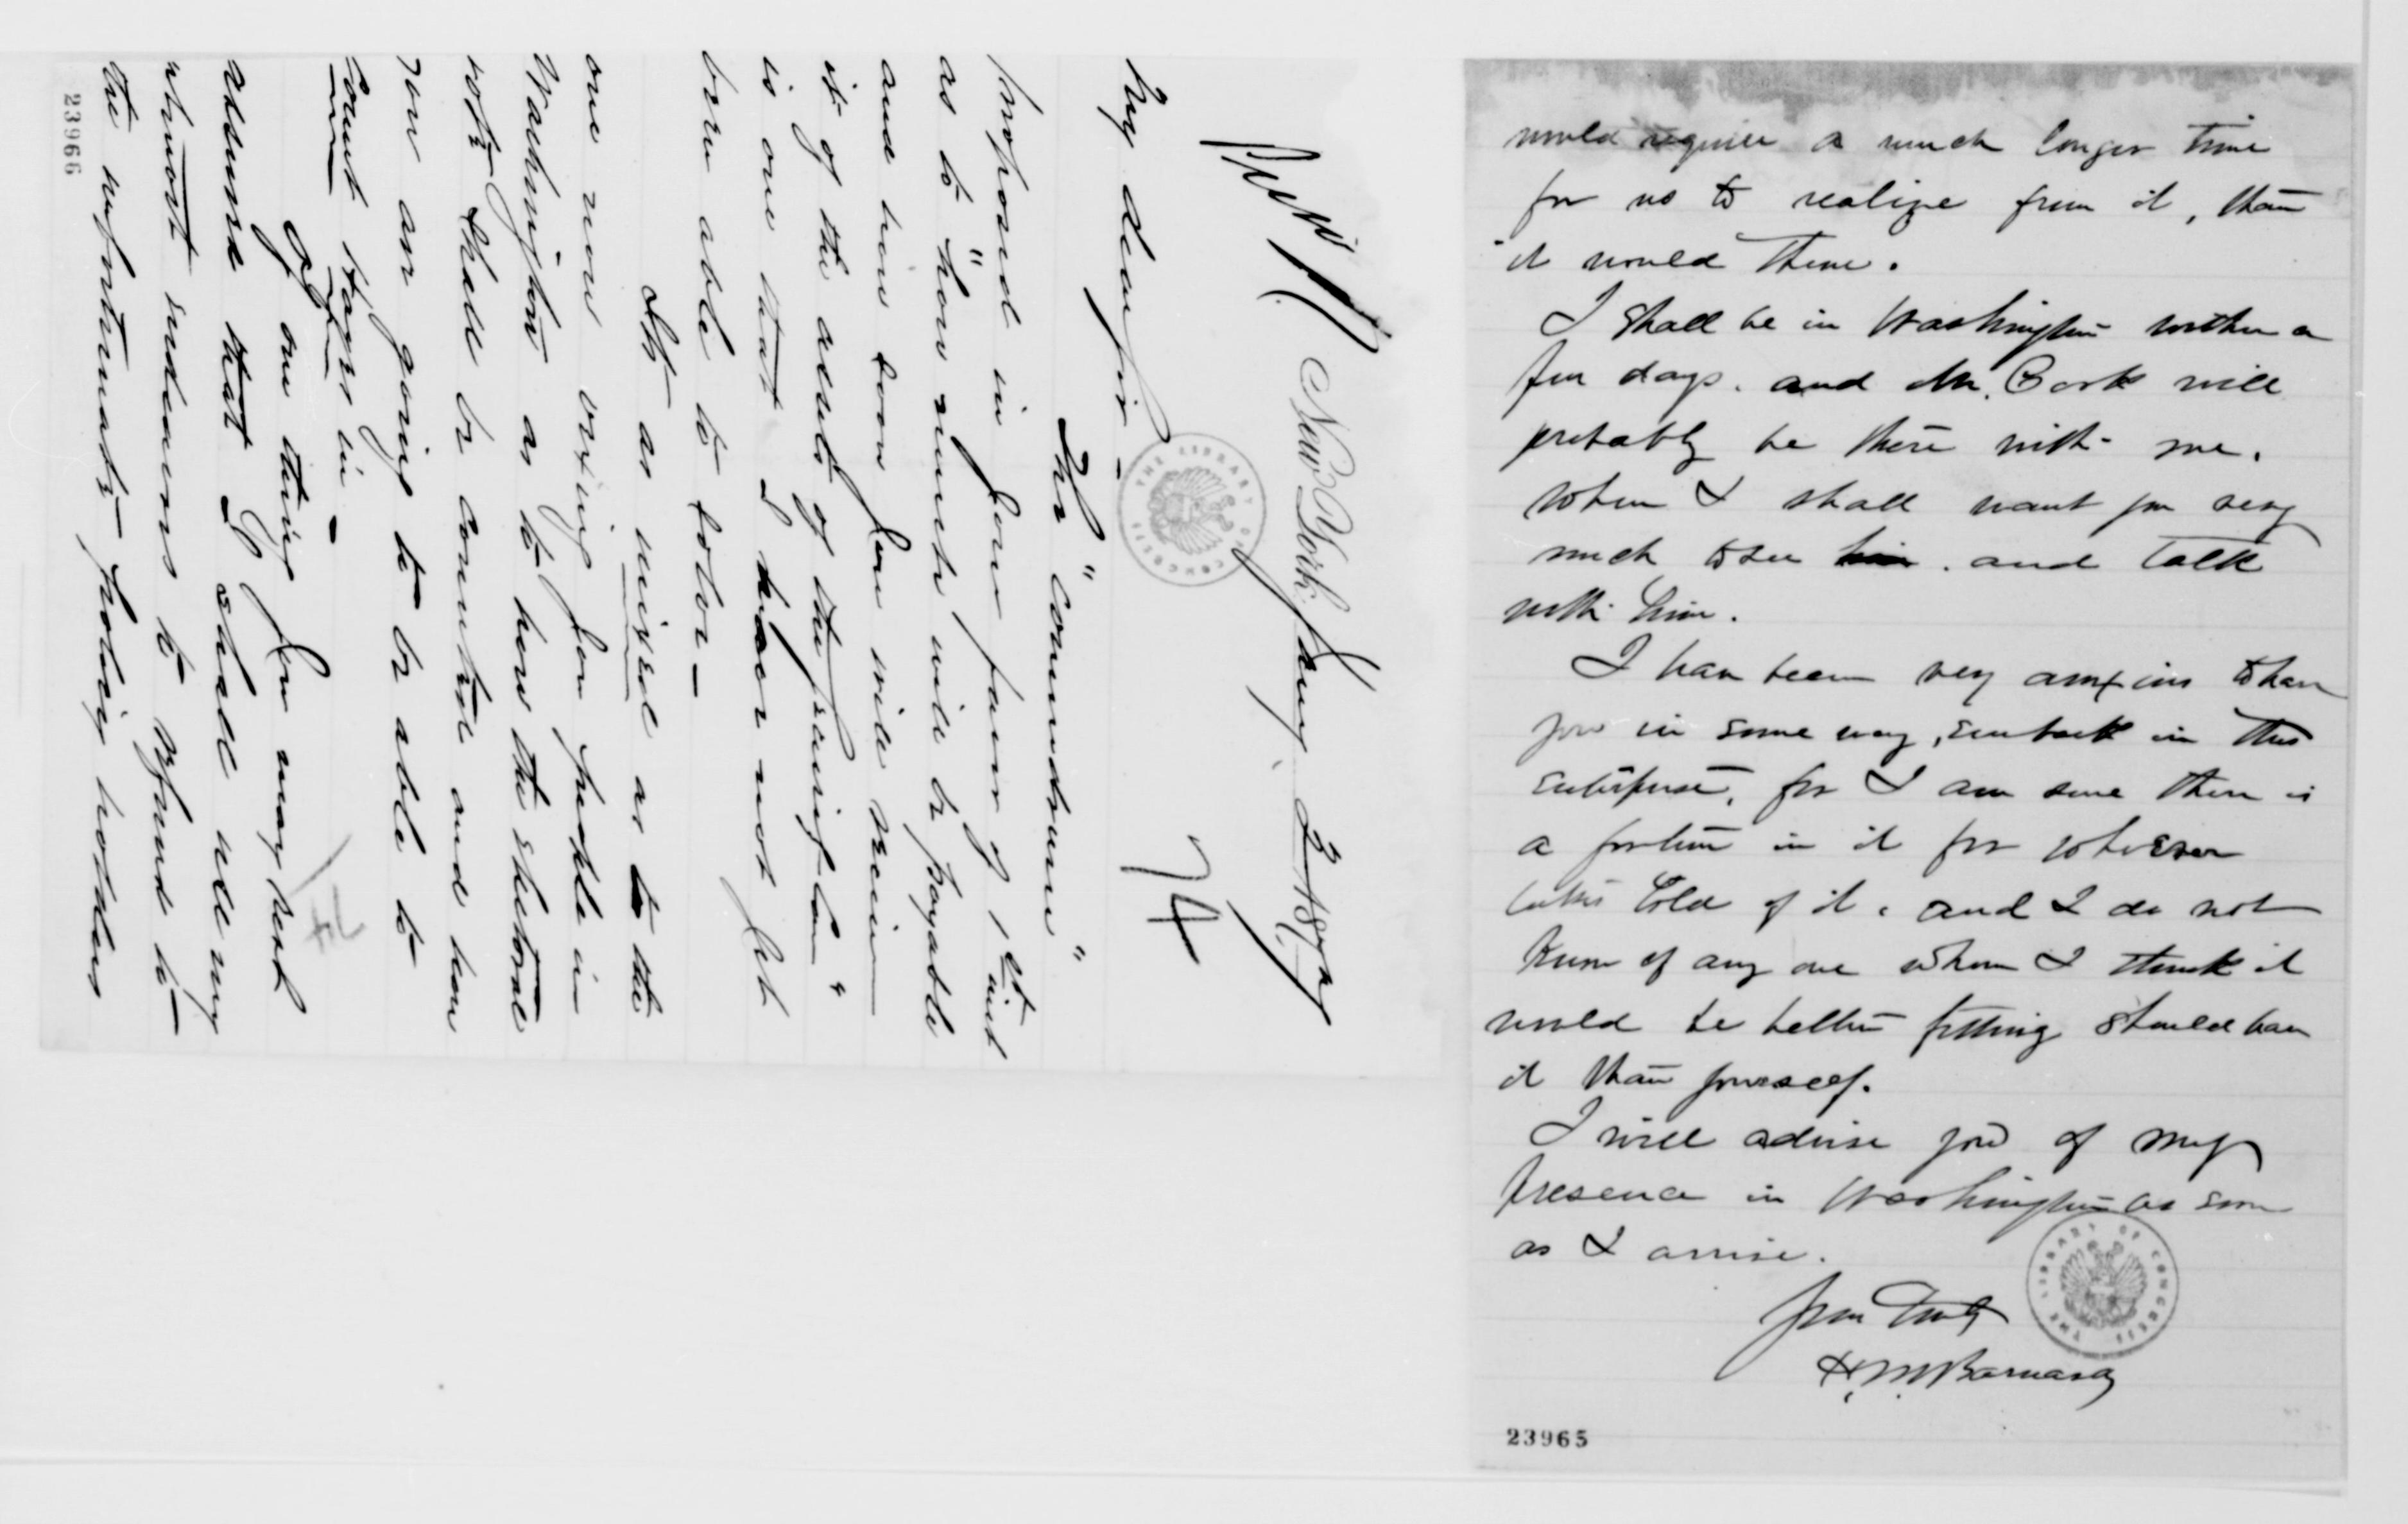 Priv'l.
New York, Jany 2 1877
74
My dear Sir –
The "conundrum"
proposed in your favor of 1st inst
as to "how much will be payable
and how soon you will receive
it of the assets of the &
is one that I have not yet
been able to solve –
It as mixed as to the
one now vexing you people in
Washington as to how the electoral
vote shall be counted and how
you are going to be able to
count Hayes in.
Of one thing you may rest
assured that I shall use my
utmost endeavors to refund to
the unfortunate policy holders
74
23966
THE LIBRARY OF CONGRESS
would require a much longer time
for us to realize from it, than
it would them.
I shall be in Washington within a
few days. and Mr. Cork will
probably be there with me.
when I shall want you very
much to see him. and talk
with him.
I have been very anxious to have
you in some way, embark in this
enterprise, for I am sure there is
a fortune in it for whoever
takes hold of it. and I do not
know of any one whom I think it
would be better fitting should have
it than yourself.
I will advise you of my
presence in Washington as soon
as I arrive.
Yours Truly
H. M. Barnard
THE LIBRARY OF CONGRESS
23965